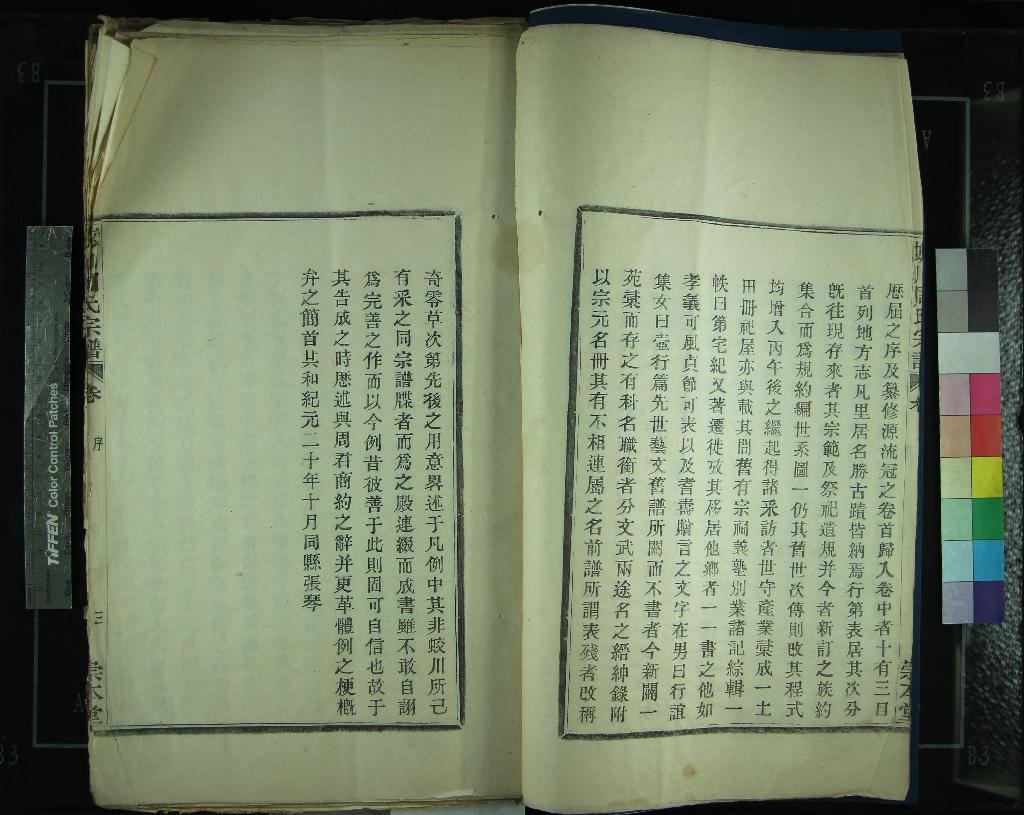 歷屆之序及纂修源流冠之卷首歸入卷中者十有三目
首列地方志凡里居名勝古蹟皆納焉行第表居其次分
旣往現存來者其宗範及祭祀遺規并今者新訂之族約
集合而爲規約編世系圖一仍其舊世次傳則攺其程式
均增入丙午後之繼起得諸采訪者世守產業彙成一土
田冊祀屋亦與載其間舊有宗祠義塾別業諸記綜輯一
帙曰第宅紀又著遷徙攷其移居他鄉者一一書之他如
孝義可風貞節可表以及耆壽贈言之文字在男曰行誼
集女曰壼行篇先世藝文舊譜所闕而不書者今新闢一
苑彙而存之有科名職銜者分文武兩途名之縉紳錄附
以宗元名冊其有不相連屬之名前譜所謂表殘者攺稱
奇零草次第先後之用意畧述于凡例中其非蛟川所己
有采之同宗譜牒者而爲之殿連綴而成書雖不敢自詡
爲完善之作而以今例昔彼善于此則固可自信也故于
其告成之時歷述與周君商約之辭并更革體例之梗概
弁之簡首共和紀元二十年十月同縣張琴
周氏宗譜
卷
序
三
崇本堂
崇本堂
TIFFEN Color Control Patches
B3
B3
B3
B3
A
A